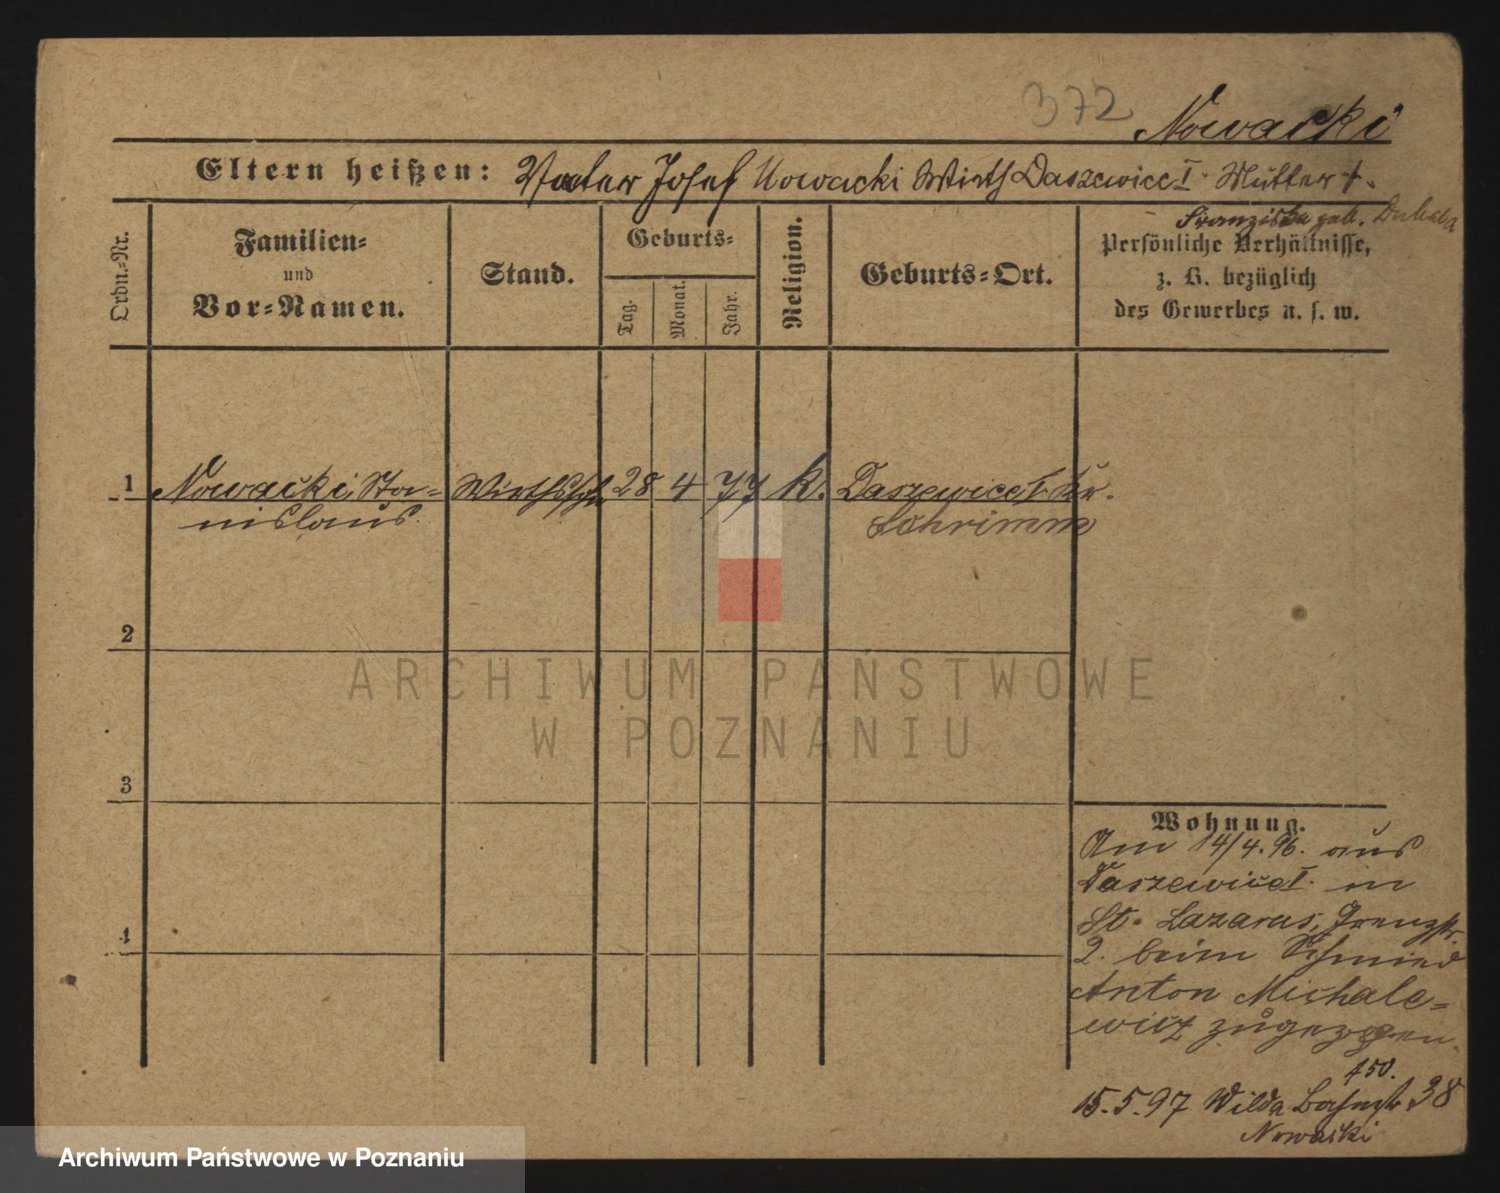 372
Nowacki
Eltern heißen: Vater Josef Nowacki Wirth Daszewice I. Mutter +.
Franziska geb.
Ordn.-Nr.
Familien-
und
Vor-Namen.
Stand.
Geburts-
Tag.
Monat.
Jahr.
Religion.
Geburts-Ort.
Persönliche Verhältnisse,
z. B. bezüglich
des Gewerbes u. s. w.
1 Nowacki, Sta- 28 4 77 k. Daszewice I. Kr.
nislaus. Schrimm
2
ARCHIWUM PAŃSTWOWE
W POZNANIU
3
Wohnung.
Am 14/4. 96. aus
Daszewice I. in
St. Lazarus, Grenzstr.
2. beim Schmied
4
Anton Michale-
wicz zugezogen.
450.
15.5.97 Wilda Bahnstr. 38
Nowacki
Archiwum Państwowe w Poznaniu